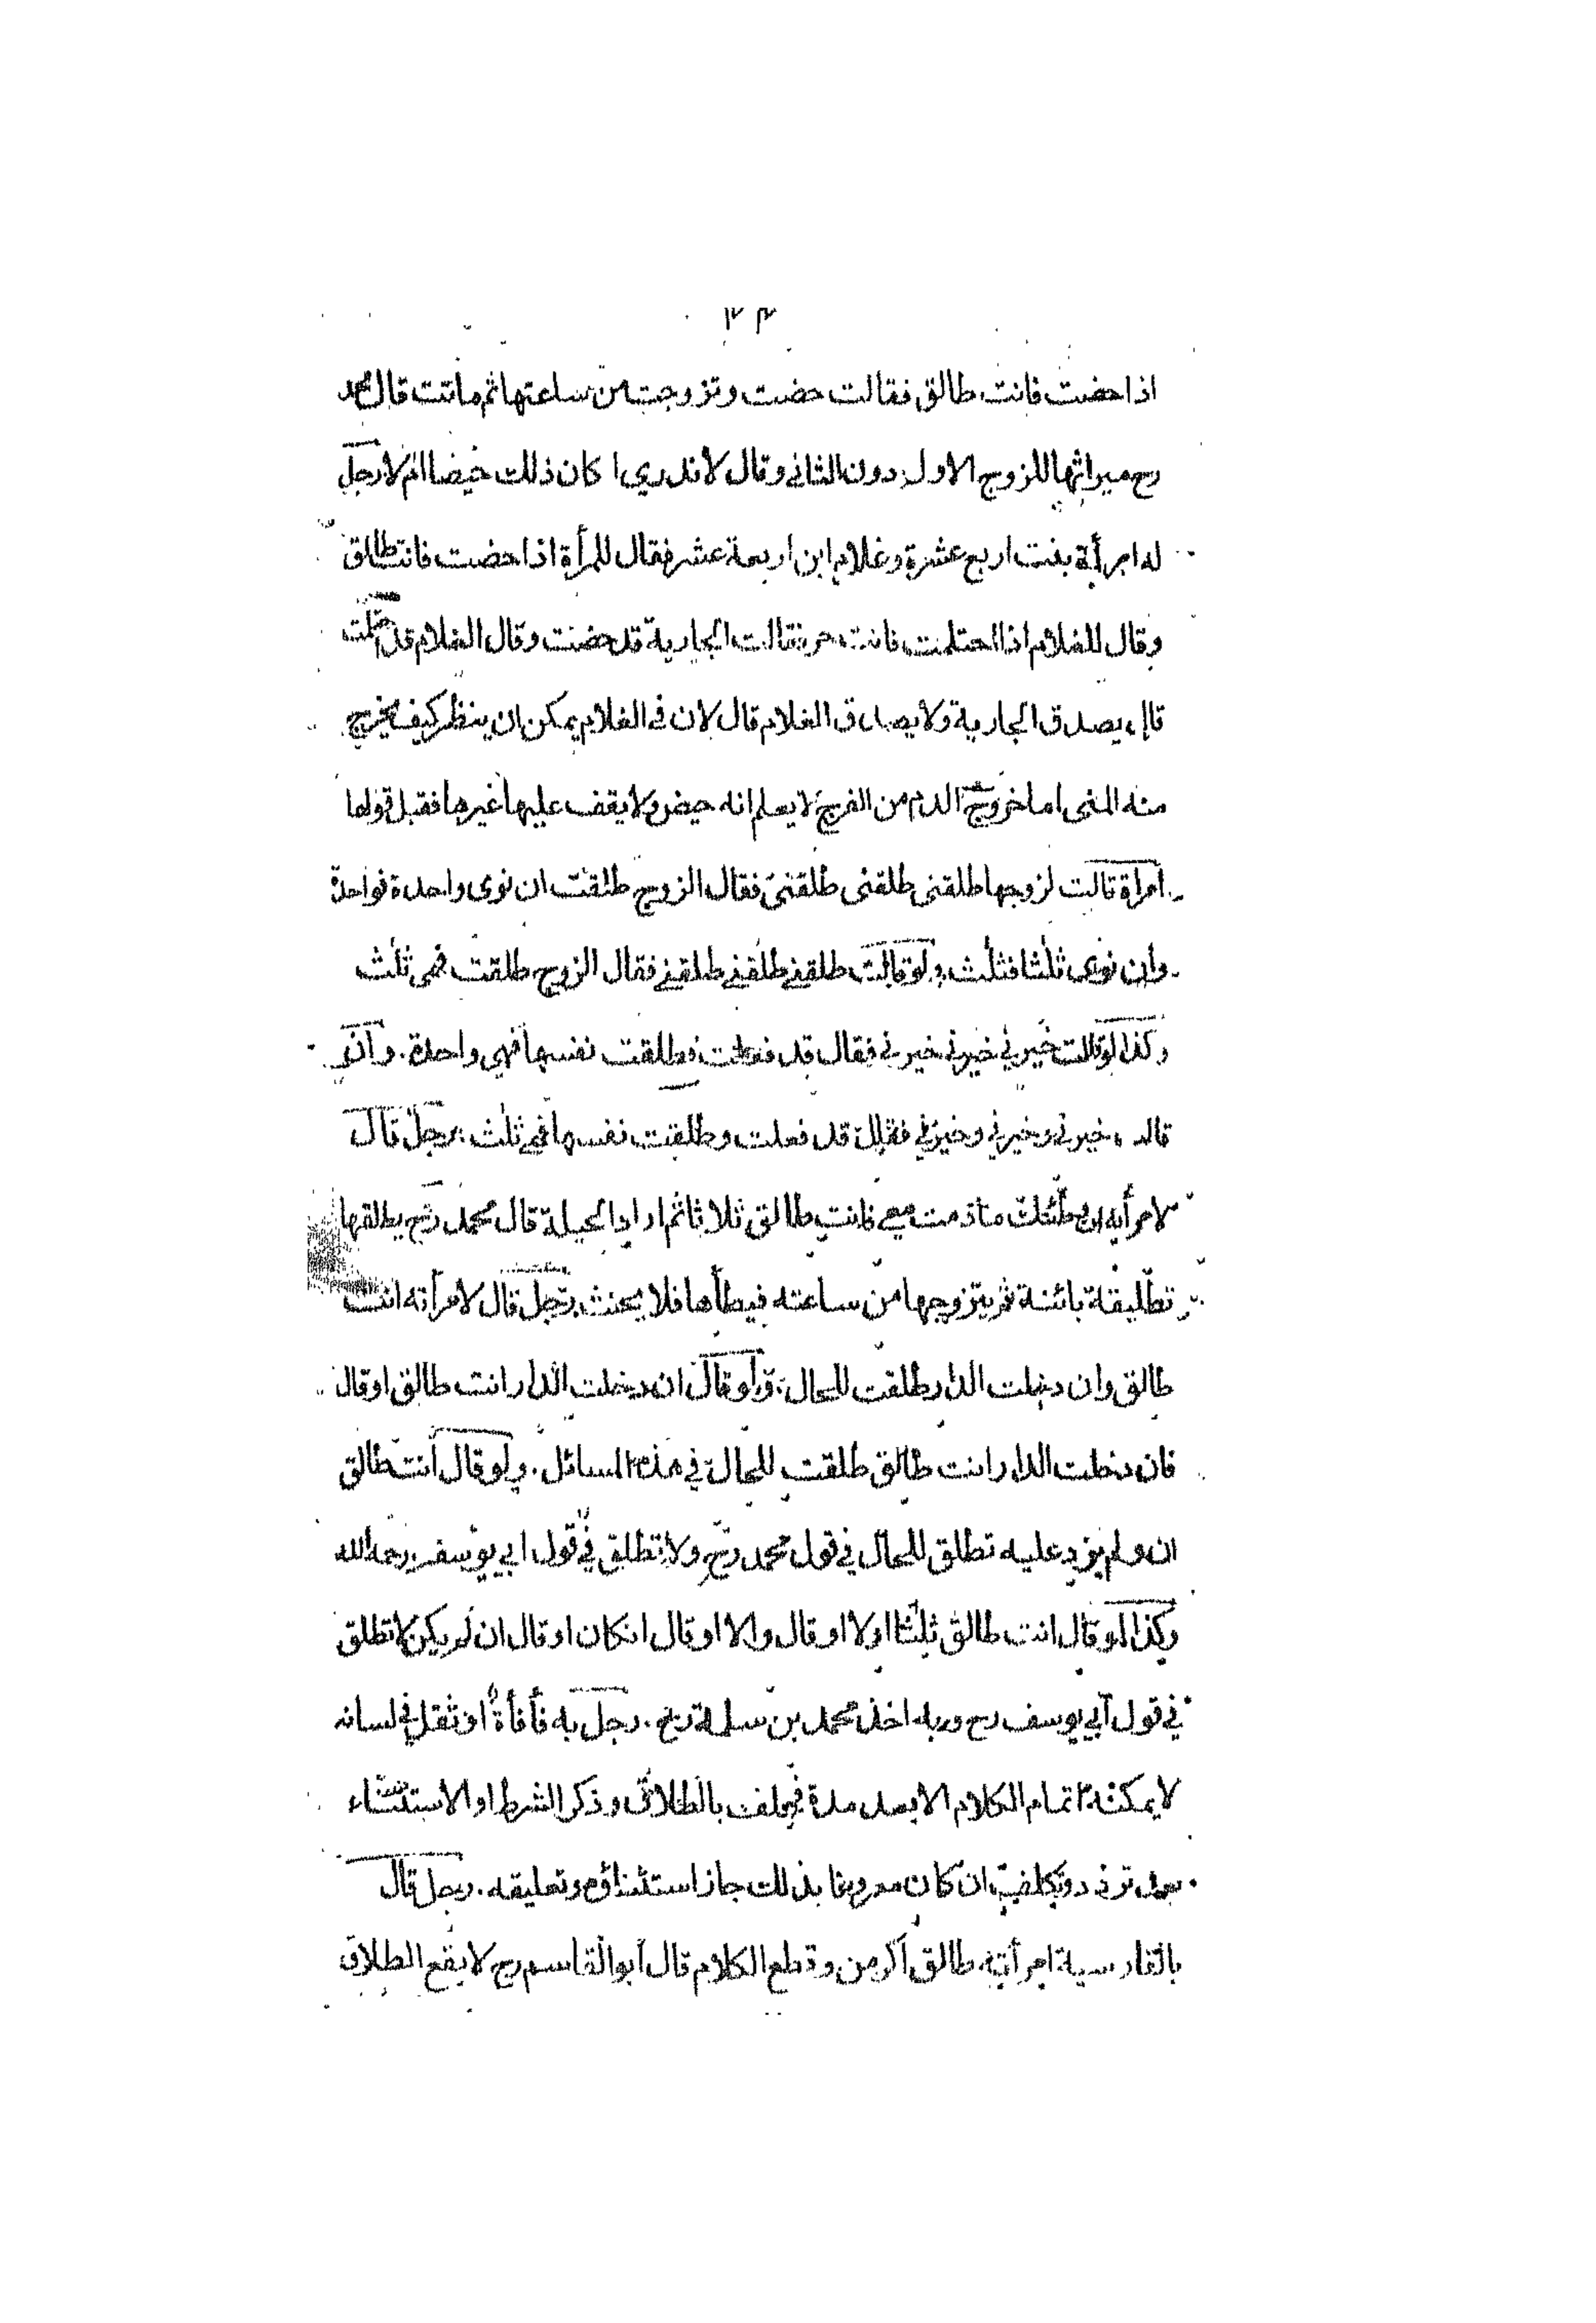 اذا حضت فانت طالق فقالت حضت وتزوجت من ساعتها ثم ماتت قال محمد
رح ميراثها للزوج الاول دون الثاني وقال لا ندري ا كان ذلك حيضا ام لا رجل
له امرأة بنت اربع عشرة وغلام ابن اربعة عشر فقال للمرأة اذا حضت فانت طالق
وقال للغلام اذا احتلمت فانت حر فقالت الجارية قد حضت وقال الغلام قد احتلمت
قال يصدق الجارية ولا يصدق الغلام قال لان في الغلام يمكن ان ينظر كيف يخرج
منه المنى اما خروج الدم من الفرج لا يعلم انه حيض ولا يقف عليها غيرها فقبل قولها
امرأة قالت لزوجها طلقنى طلقنى طلقنى فقال الزوج طلقت ان نوى واحدة فواحدة
وان نوى ثلثا فثلث ولو قالت طلقني طلقني طلقني فقال الزوج طلقت فهى ثلث
وكذا لو قالت خيرني خيرني خيرني فقال قد فعلت فطلقت نفسها فهي واحدة. وان
قالت خيرني وخيرني وخيرني فقال قد فعلت وطلقت نفسها فهي ثلث رجل قال
لامرأته ان وطئتك ما دمت معي فانت طالق ثلاثا ثم اراد الحيلة قال محمد رح يطلقها
تطليقة بائنة ثم يتزوجها من ساعته فيطأها فلا يحنث رجل قال لامرأته انت
طالق وان دخلت الدار طلقت للحال ولو قال ان دخلت الدار انت طالق او قال
فان دخلت الدار انت طالق طلقت للحال في هذه المسائل. ولو قال انت طالق
ان ولم يزد عليه تطلق للحال في قول محمد رح ولا تطلق في قول ابي يوسف رحمه الله
وكذا لو قال انت طالق ثلثا اولا او قال والا او قال ان كان او قال ان لم يكن لا تطلق
في قول ابي يوسف رح وبه اخذ محمد بن سلمة رح. رجل به فأفأة او ثقل في لسانه
لا يمكنه اتمام الكلام الا بعد مدة فحلف بالطلاق وذكر الشرط او الاستثناء
بعد تردد وتكلف ان كان معروفا بذلك جاز استثناؤه وتعليقه. رجل قال
بالفارسية امرأته طالق اكر من وقطع الكلام قال ابو القاسم رح لا يقع الطلاق